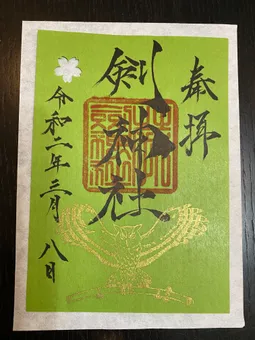 奉拝
劔神社
令和二年三月八日